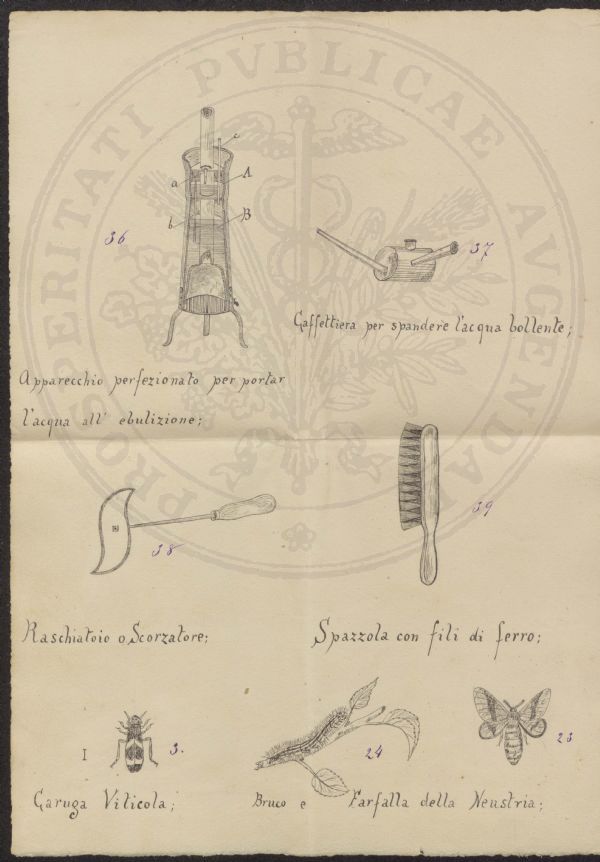 PROSPERITATI PVBLICAE AVGENDAE
c
a A
b B
36
37
Caffettiera per spandere l'acqua bollente;
Apparecchio perfezionato per portar
l'acqua all' ebulizione;
38
39
Raschiatoio o Scorzatore;
Spazzola con fili di ferro;
I 3.
24
23
Caruga Viticola;
Bruco e Farfalla della Neustria;